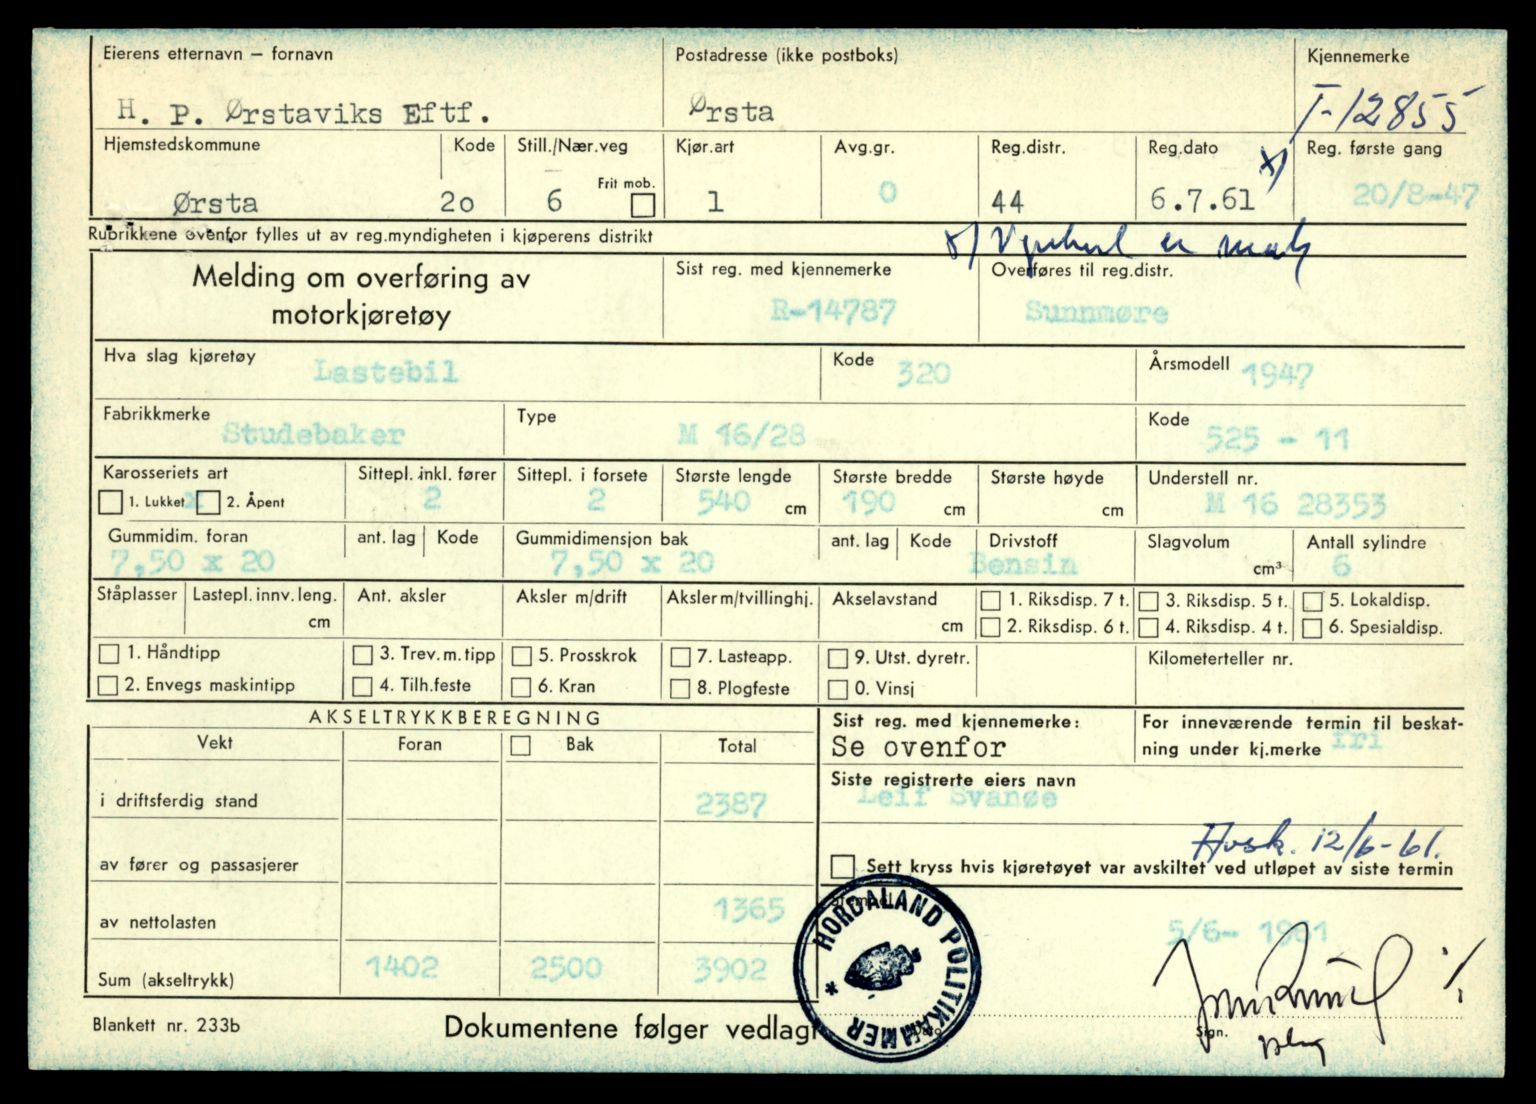 Eierens etternavn – fornavn Postadresse (ikke postboks) Kjennemerke
H. P. Ørstaviks Eftf. Ørsta T-12855
Hjemstedskommune Kode Still./Nær.veg Kjør.art Avg.gr. Reg.distr. Reg.dato Reg. første gang
Frit mob.
Ørsta 20 6 1 0 44 6.7.61 x) 20/8-47
Rubrikkene ovenfor fylles ut av reg.myndigheten i kjøperens distrikt x) er
Melding om overføring av
motorkjøretøy
Sist reg. med kjennemerke Overføres til reg.distr.
R-14787 Sunnmøre
Hva slag kjøretøy Kode Årsmodell
Lastebil 320 1947
Fabrikkmerke Type Kode
Studebaker M 16/28 525 - 11
Karosseriets art Sittepl. inkl. fører Sittepl. i forsete Største lengde Største bredde Største høyde Understell nr.
1. Lukket x 2. Åpent 2 2 540 cm 190 cm cm M 16 28353
Gummidim. foran ant. lag Kode Gummidimensjon bak ant. lag Kode Drivstoff Slagvolum Antall sylindre
7,50 x 20 7,50 x 20 Bensin cm³ 6
Ståplasser Lastepl. innv. leng. Ant. aksler Aksler m/drift Aksler m/tvillinghj. Akselavstand 1. Riksdisp. 7 t. 3. Riksdisp. 5 t. 5. Lokaldisp.
cm cm 2. Riksdisp. 6 t. 4. Riksdisp. 4 t. 6. Spesialdisp.
1. Håndtipp 3. Trev. m. tipp 5. Prosskrok 7. Lasteapp. 9. Utst. dyretr. Kilometerteller nr.
2. Envegs maskintipp 4. Tilh.feste 6. Kran 8. Plogfeste 0. Vinsj
AKSELTRYKKBEREGNING
Vekt Foran Bak Total
i driftsferdig stand 2387
av fører og passasjerer
av nettolasten 1365
Sum (akseltrykk) 1402 2500 3902
Sist reg. med kjennemerke: For inneværende termin til beskat-
Se ovenfor ning under kj.merke fri
Siste registrerte eiers navn
Leif Svanøe
Avsk. 12/6-61.
Sett kryss hvis kjøretøyet var avskiltet ved utløpet av siste termin
Stempel
HORDALAND POLITIKAMMER *
5/6- 1961
Dato Sign.
Blankett nr. 233b Dokumentene følger vedlagt